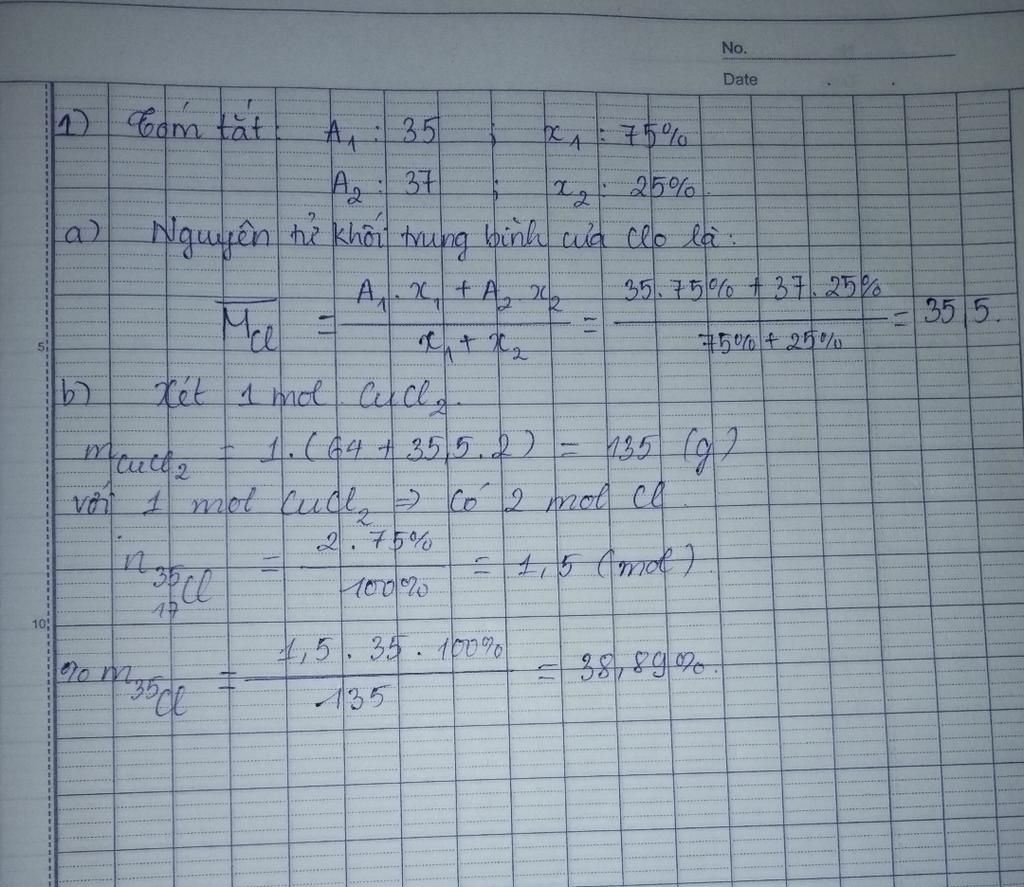 No.
Date
1) Tóm tắt: A₁ : 35 ; x₁ : 75%
A₂ : 37 ; x₂ : 25%.
a) Nguyên tử khối trung bình của clo là:
M̅_Cl = (A₁.x₁ + A₂.x₂)/(x₁ + x₂) = (35.75% + 37.25%)/(75% + 25%) = 35,5.
5
b) Xét 1 mol CuCl₂.
m_CuCl₂ = 1.(64 + 35,5.2) = 135 (g)
với 1 mol CuCl₂ ⇒ có 2 mol Cl.
n ³⁵₁₇Cl = (2.75%)/(100%) = 1,5 (mol)
10
%m ³⁵Cl = (1,5.35.100%)/(135) = 38,89%.